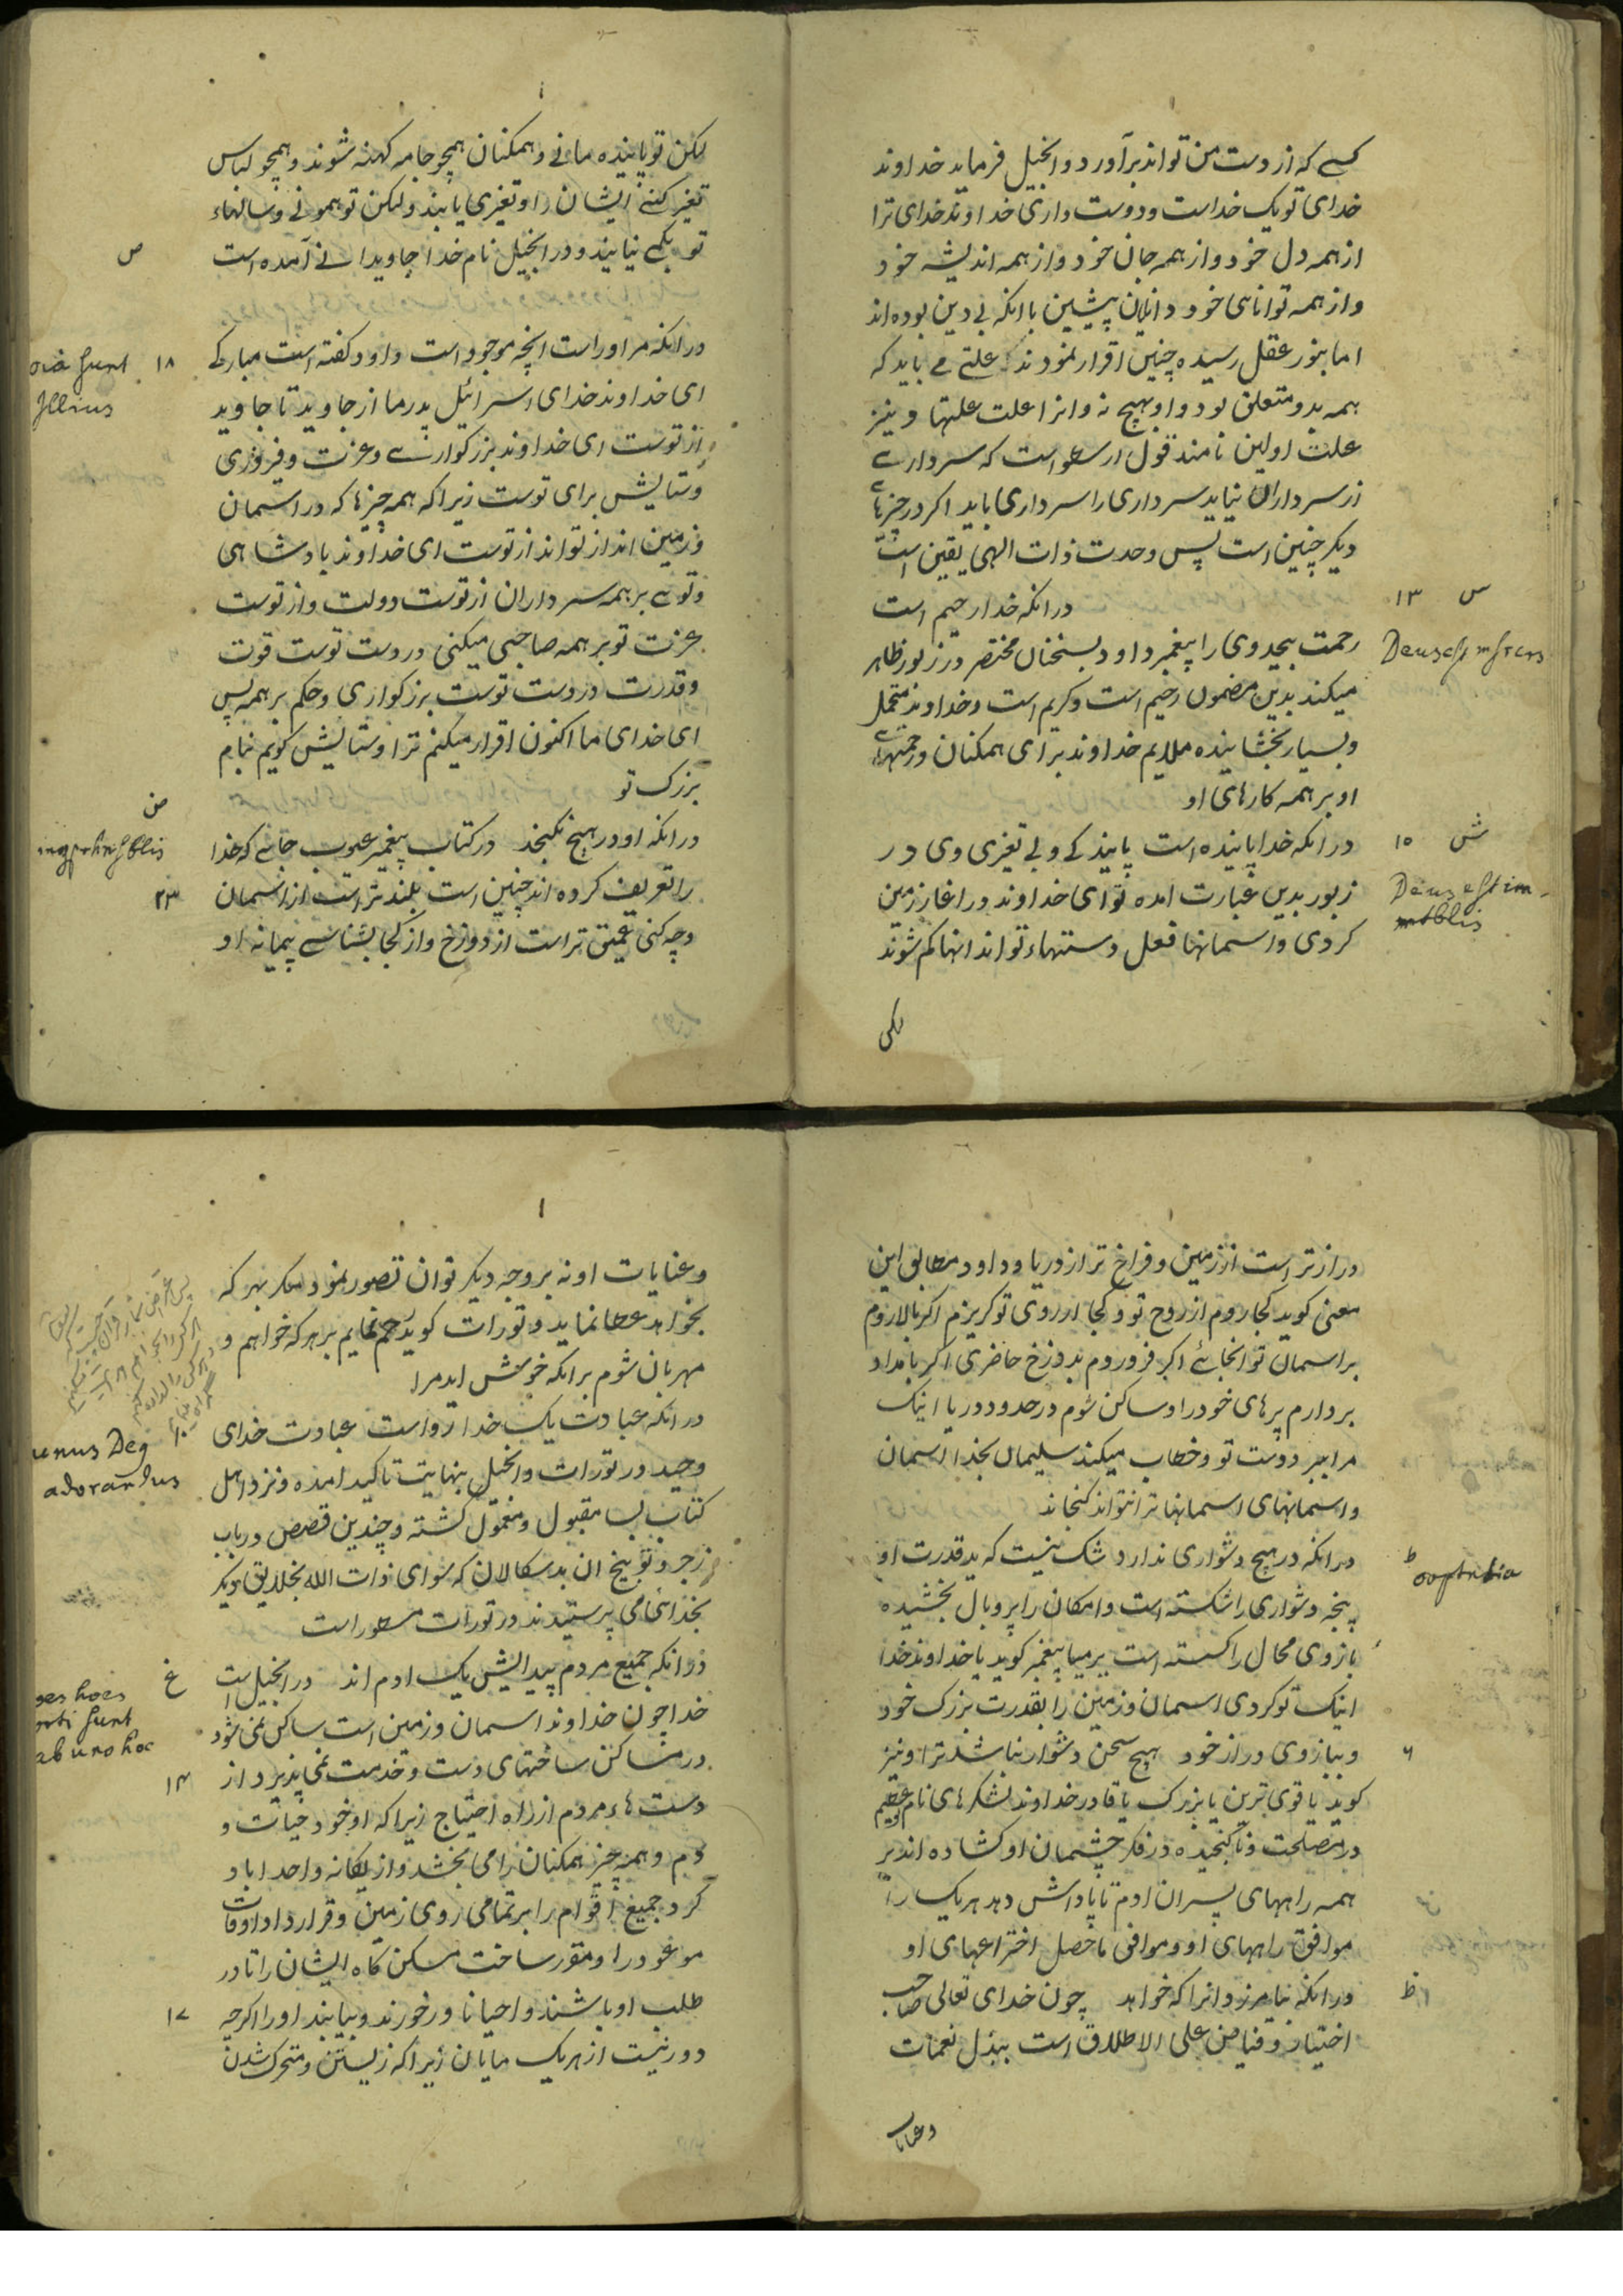 کسے که از دست من تواند برآورد و انجیل فرماید خداوند
خدای تو یک خداست و دوست داری خداوند خدای ترا
از همه دل خود و از همه جان خود و از همه اندیشه خود
و از همه توانای خود دانایان پیشین با انکه بی دین بوده اند
اما بنور عقل رسیده چنین اقرار نمودند که علتے مے باید که
همه بدو متعلق بود و او بهیچ نه و انرا علت علتها و نیز
علت اولین نامند قول ارسطو است که سردارے
از سرداران نیاید سرداری را سرداری باید اکر در چیزهاے
دیکر چنین است پس وحدت ذات الهی یقین است
س ۱۳ در انکه خدا رحیم است
رحمت بیحد وی را پیغمبر داود بسخنان مختصر در زبور ظاهر
Deus est mise​rs
میکند بدین مضمون رحیم است و کریم است و خداوند متحمل
و بسیار بخشاینده ملایم خداوند برای همکنان و رحمتهاے
او بر همه کارهای او
ش ۱۵ در انکه خدا پاینده است پایندکے و بے تغیری وی در
زبور بدین عبارت امده تو ای خداوند در اغاز زمین
Deus est im-
mtblis
کردی و اسمانها فعل دستهاء تو اند انها کم شوند
لکن
لکن تو پاینده مانے و همکنان همچو جامه کهنه شوند و همچو لباس
تغیر کنے ایشان را و تغیری یابند و لکن تو همونی و سالهاء
ص تو بکمے نیایند و در انجیل نام خدا جاویدانے آمده است
۱۸ در انکه مر او راست انچه موجود است داود کفته است مبارکے
oia sunt
Illius
ای خداوند خدای اسرائیل پدر ما از جاوید تا جاوید
از توست ای خداوند بزرکوارے و عزت و فیروزی
و ستایش برای توست زیرا که همه چیزها که در اسمان
و زمین اند از تو اند از توست ای خداوند پادشاهی
و توے بر همه سرداران از توست دولت و از توست
عزت تو بر همه صاحبی میکنی در دست توست قوت
و قدرت در دست توست بزرکواری و حکم بر همه پس
ای خدای ما اکنون اقرار میکنم ترا و ستایش کویم بنام
بزرک تو
ض در انکه او در هیچ نکنجد در کتاب پیغمبر عیوب جاے که خدا
را تعریف کرده اند چنین است بلند تر است از اسمان
۲۳
و چه کنی عمیق تر است از دوزخ و از کجا بشناسے پیمانه او
دراز تر است از زمین و فراخ تر از دریا و داود مطابق این
معنی کوید کجا روم از روح تو و کجا از روی تو کریزم اکر بالا روم
بر اسمان تو انجائے اکر فرو روم بدوزخ حاضری اکر بامداد
بردارم پرهای خود را و ساکن شوم در حدود دریا اینک
مرا ببرد دست تو و خطاب میکند سلیمان بخدا اسمان
و اسمانهای اسمانها ترا نتواند کنجاند
ط در انکه در هیچ دشواری ندارد شک نیست که ید قدرت او
پنجه دشواری را شکسته است و امکان را پر و بال بخشیده
بازوی محال را کسسته است یرمیا پیغمبر کوید یا خداوند خدا
اینک تو کردی اسمان و زمین را بقدرت بزرک خود
و ببازوی دراز خود هیچ سخن دشوار نباشد ترا و نیز
کوید یا قوی ترین یا بزرک یا قادر خداوند لشکرهای نام تو عظیم
در مصلحت و نا کنجیده در فکر چشمان او کشاده اند بر
همه راههای پسران ادم تا پاداش دهد هر یک را
موافق راههای او و موافق ماحصل اختراعهای او
ظ در انکه بیامرزد انرا که خواهد چون خدای تعالی صاحب
اختیار و فیاض علی الاطلاق است ببذل نعمات
و عنایات
و عنایات او نه بر وجه دیکر توان تصور نمود مکر بهر که
بخواهد عطا نماید و تورات کوید رحم نمایم بر هر که خواهم و
مهربان شوم بر انکه خوش ایدمرا
در انکه عبادت یک خدا رواست عبادت خدای
unus Deg
adorandus
وحید در تورات و انجیل بنهایت تاکید امده و نزد اهل
کتاب بسا مقبول و معمول کشته و چندین قصص در باب
زجر و توبیخ ان بد سکالان که سوای ذات الله بخلایق دیکر
بخدائی می پرستیدند در تورات مسطور است
غ در انکه جمیع مردم پیدایش یک ادم اند در انجیل است
oes hoes
orti sunt
ab uno hoc
خدا چون خداوند اسمان و زمین است ساکن نمی شود
در مساکن ساختهای دست و خدمت نمی پذیرد از
دست هاء مردم از راه احتیاج زیرا که او خود حیات و
دم و همه چیز همکنان را می بخشد و از یکانه واحد اباد
کرد جمیع اقوام را بر تمامی روی زمین و قرار داد اوقات
موعود را و مقرر ساخت مسکن کاه ایشان را تا در
۱۷ طلب او باشند و احیانا در خورند و بیابند او را اکرچه
دور نیست از هر یک مایان زیرا که زیستن و متحرک شدن